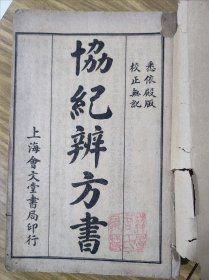 悉依殿版
校正無訛
協紀辨方書
上海會文堂書局印行